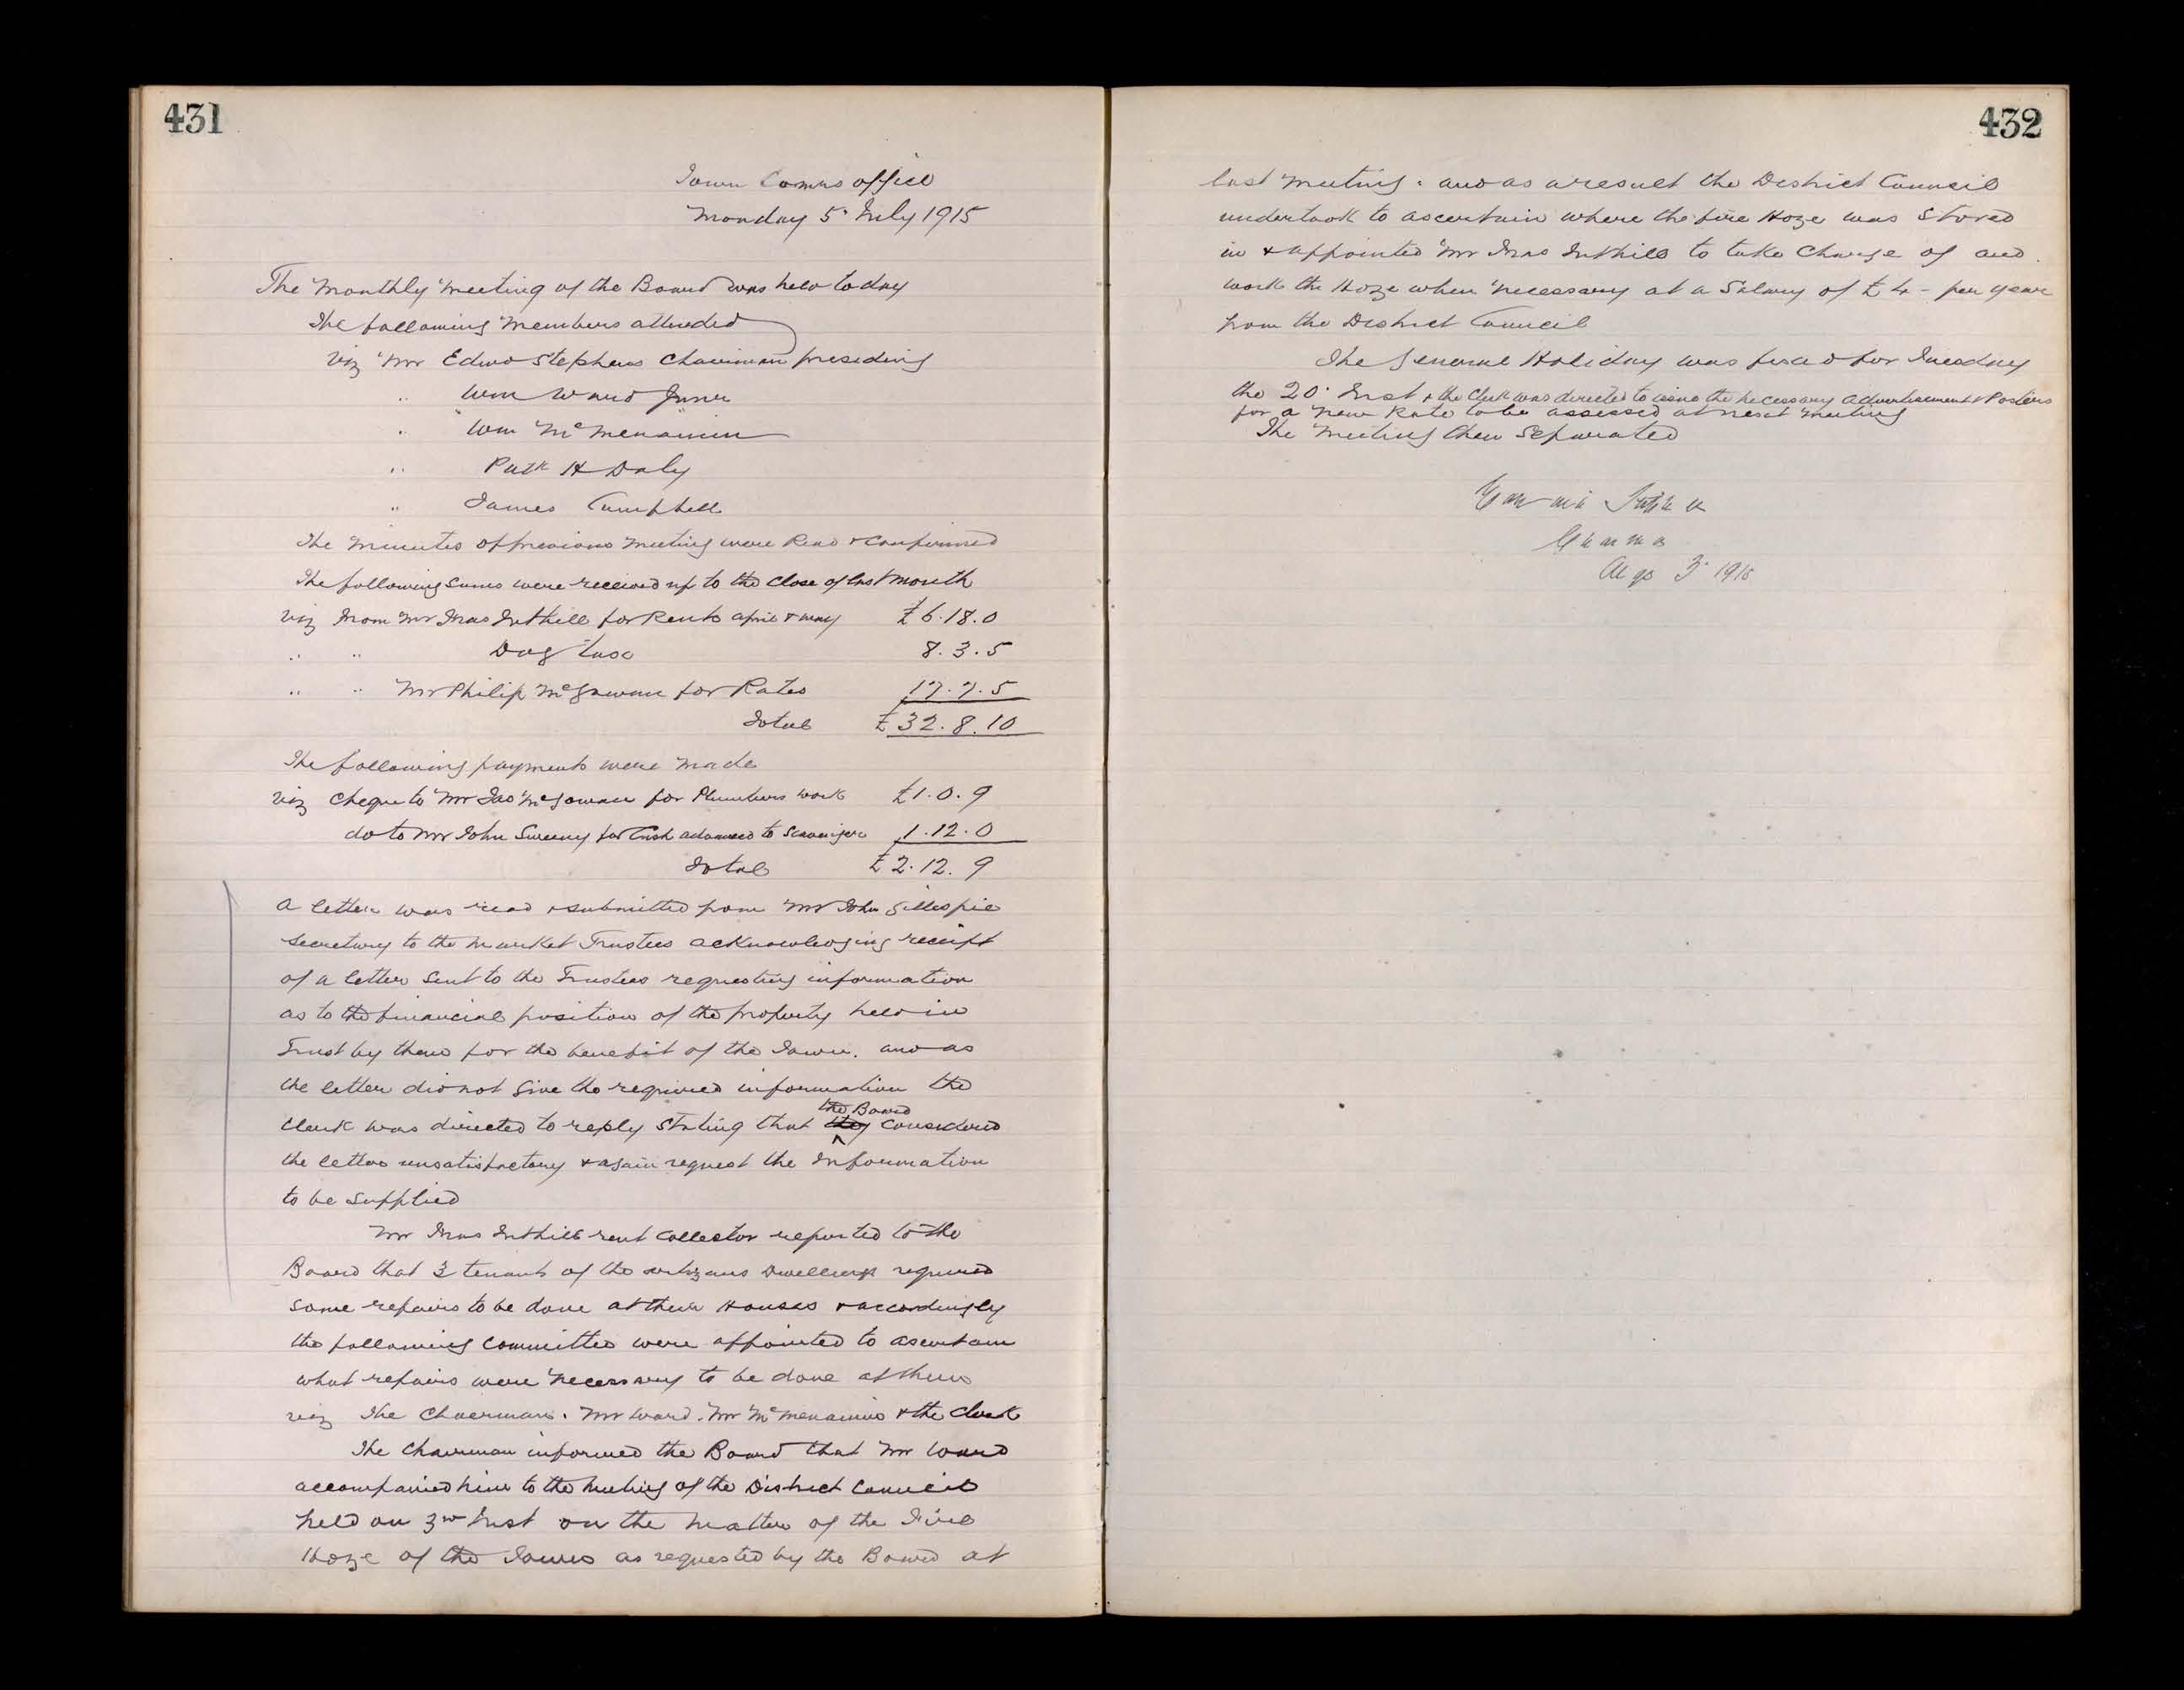 431
Town Comrs office
Monday 5' July 1915
The Monthly Meeting of the Board was held today
The following Members attended
viz Mr Edwd Stephens Chairman presiding
" Wm Ward Junr
" Wm McMenamin
" Patk H Daly
" James Campbell
The Minutes of previous Meeting were Read & Confirmed
The following sums were received up to the close of last month
viz From Mr Tuthill for Rents april & may £6.18.0
" " Dog tax 8.3.5
" " Mr Philip McGowan for Rates 17.7.5
Total £32.8.10
The following payments were made
viz Cheque to Mr Jas McGowan for Plumbers work £1.0.9
do to Mr John Sweeny for Cash advanced to Scavenger 1.12.0
Total £2.12.9
A letter was read & submitted from Mr John Gillespie
Secretary to the Market Trustees acknowledging receipt
of a letter sent to the Trustees requesting information
as to the financial position of the property held in
Trust by them for the benefit of the Town. and as
the letter did not give the required information the
the Board
Clerk was directed to reply stating that they considered
the letter unsatisfactory & again request the Information
to be supplied
Mr Tuthill rent collector reported to the
Board that 3 tenants of the artizans Dwellings required
some repairs to be done at their Houses & accordingly
the following Committee were appointed to ascertain
what repairs were necessary to be done at them
viz The Chairman. Mr Ward. Mr McMenamin & the Clerk
The Chairman informed the Board that Mr Ward
accompanied him to the Meeting of the District Council
held on 3rd Inst on the matter of the Fire
Hoze of the Town as requested by the Board at
432
last Meeting. and as a result the District Council
undertook to ascertain where the fire Hoze was stored
in & appointed Mr Tuthill to take Charge of and
work the Hoze when necessary at a Salary of £4- per year
from the District Council
The General Holiday was fixed for Tuesday
the 20' Inst & the Clerk was directed to issue the necessary advertisement & Posters
for a New Rate to be assessed at next Meeting
The Meeting then Separated